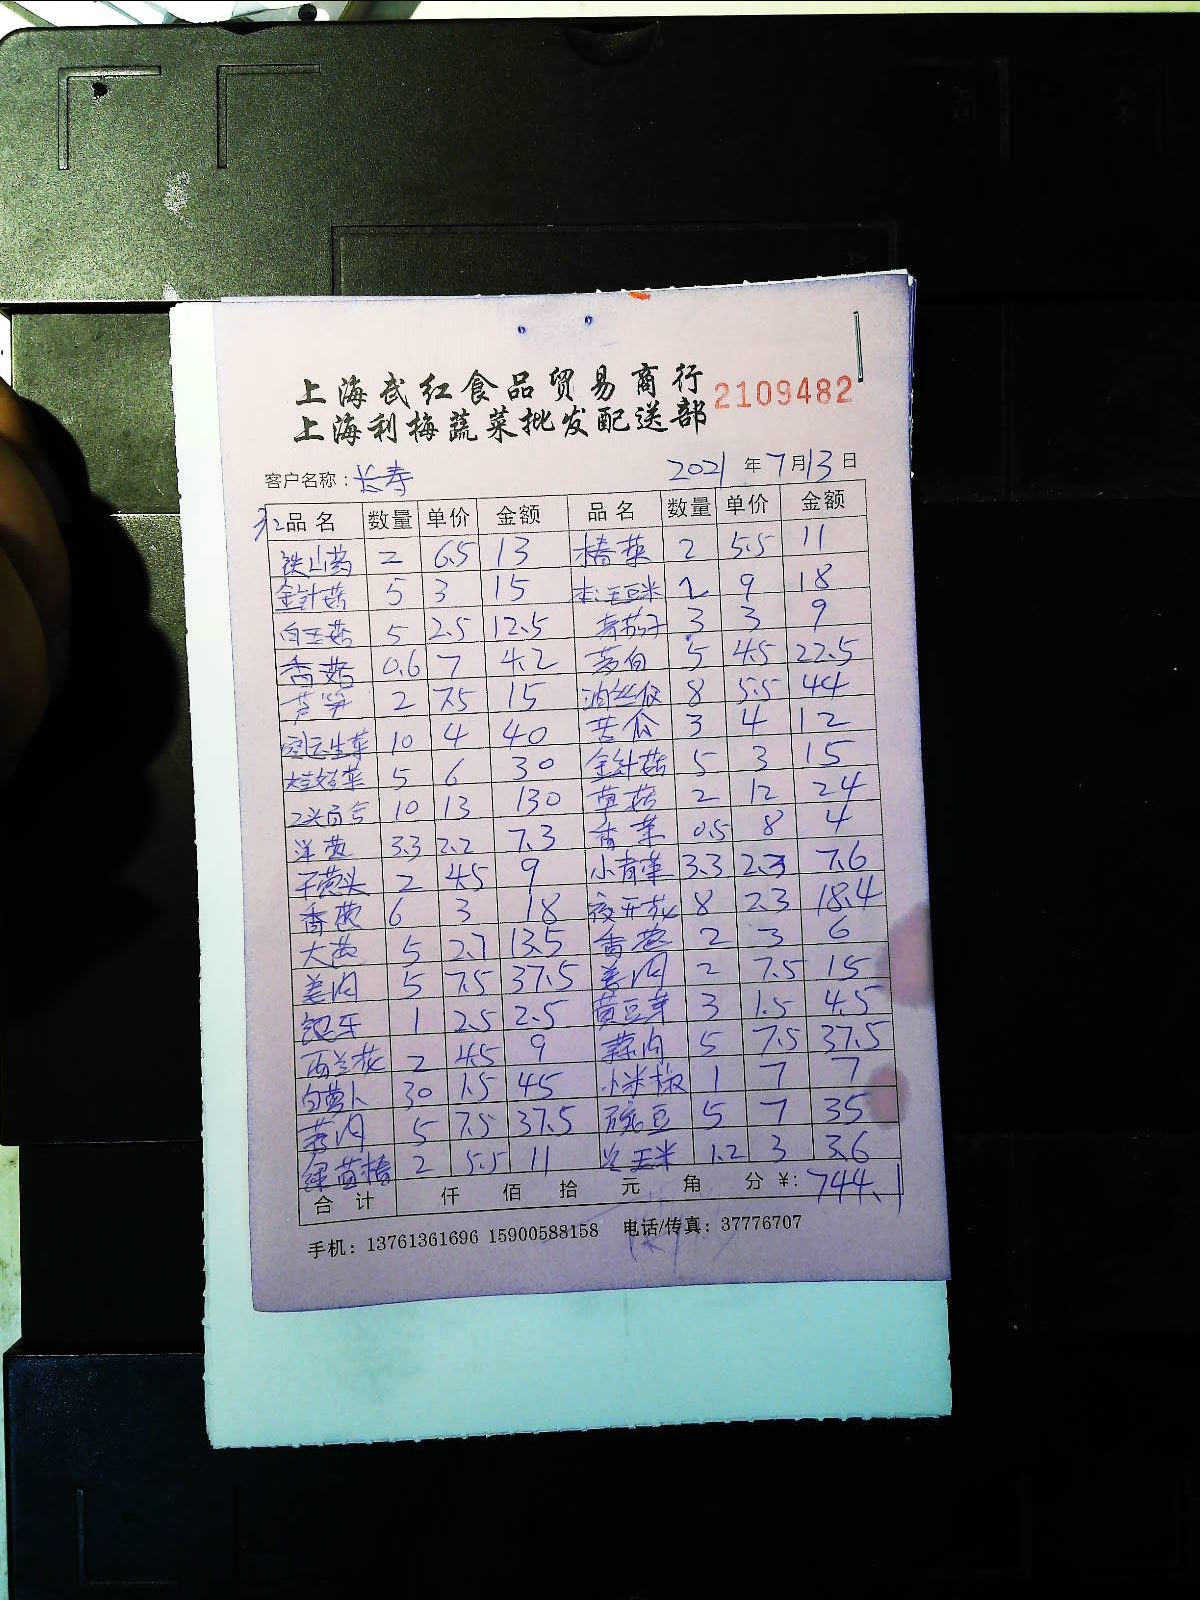 上海武红食品贸易商行
2109482
上海利梅蔬菜批发配送部
客户名称：长寿 2021年7月13日
品名 数量 单价 金额 品名 数量 单价 金额
铁山药 2 6.5 13 椿菜 2 5.5 11
金针菇 5 3 15 玉豆米 2 9 18
白玉菇 5 2.5 12.5 青茄子 3 3 9
香菇 0.6 7 4.2 茭白 5 4.5 22.5
芦笋 2 7.5 15 油丝瓜 8 5.5 44
生菜 10 4 40 苦瓜 3 4 12
菜 5 6 30 金针菇 5 3 15
百合 10 13 130 草菇 2 12 24
洋葱 3.3 2.2 7.3 香菜 0.5 8 4
干葱头 2 4.5 9 小青菜 3.3 2.3 7.6
香葱 6 3 18 夜开花 8 2.3 18.4
大葱 5 2.7 13.5 香葱 2 3 6
姜肉 5 7.5 37.5 姜肉 2 7.5 15
银牙 1 2.5 2.5 黄豆芽 3 1.5 4.5
西兰花 2 4.5 9 蒜肉 5 7.5 37.5
白萝卜 30 1.5 45 小米椒 1 7 7
蒜肉 5 7.5 37.5 豌豆 5 7 35
绿 椿 2 5.5 11 玉米 1.2 3 3.6
合计 仟 佰 拾 元 角 分 ¥：744.1
手机：13761361696 15900588158 电话/传真：37776707